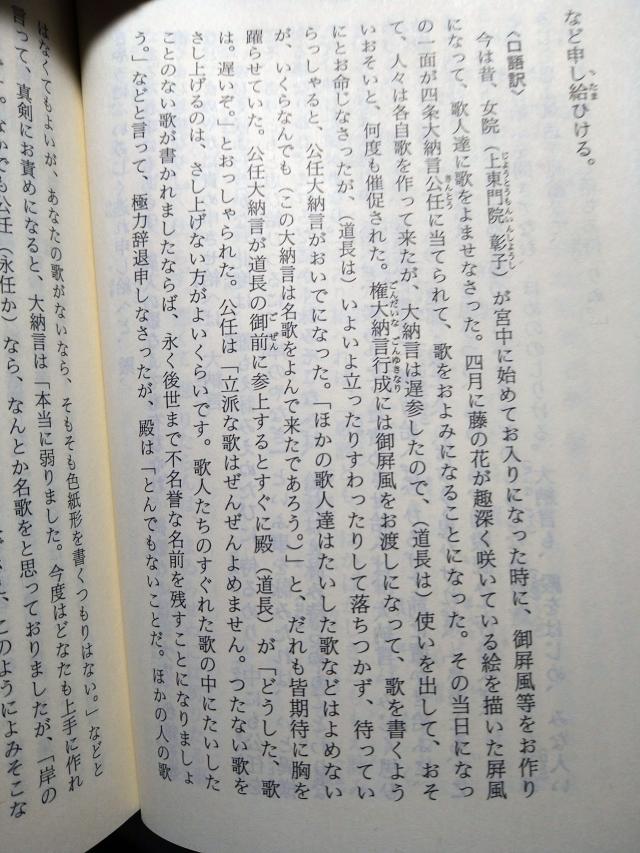 など申し給ひける。
〈口語訳〉
今は昔、女院（上東門院 彰子）が宮中に始めてお入りになった時に、御屛風等をお作り
になって、歌人達に歌をよませなさった。四月に藤の花が趣深く咲いている絵を描いた屛風
の一面が四条大納言公任に当てられて、歌をおよみになることになった。その当日になっ
て、人々は各自歌を作って来たが、大納言は遅参したので、（道長は）使いを出して、おそ
いおそいと、何度も催促された。権大納言行成には御屛風をお渡しになって、歌を書くよう
にとお命じなさったが、（道長は）いよいよ立ったりすわったりして落ちつかず、待ってい
らっしゃると、公任大納言がおいでになった。「ほかの歌人達はたいした歌などはよめない
が、いくらなんでも（この大納言は名歌をよんで来たであろう。）」と、だれも皆期待に胸を
躍らせていた。公任大納言が道長の御前に参上するとすぐに殿（道長）が「どうした、歌
は。遅いぞ。」とおっしゃられた。公任は「立派な歌はぜんぜんよめません。つたない歌を
さし上げるのは、さし上げない方がよいくらいです。歌人たちのすぐれた歌の中にたいした
ことのない歌が書かれましたならば、永く後世まで不名誉な名前を残すことになりましょ
う。」などと言って、極力辞退申しなさったが、殿は「とんでもないことだ。ほかの人の歌
はなくてもよいが、あなたの歌がないなら、そもそも色紙形を書くつもりはない。」などと
言って、真剣にお責めになると、大納言は「本当に弱りました。今度はどなたも上手に作れ
なかでも公任（永任か）なら、なんとか名歌をと思っておりましたが、「岸の
このようによみそこな